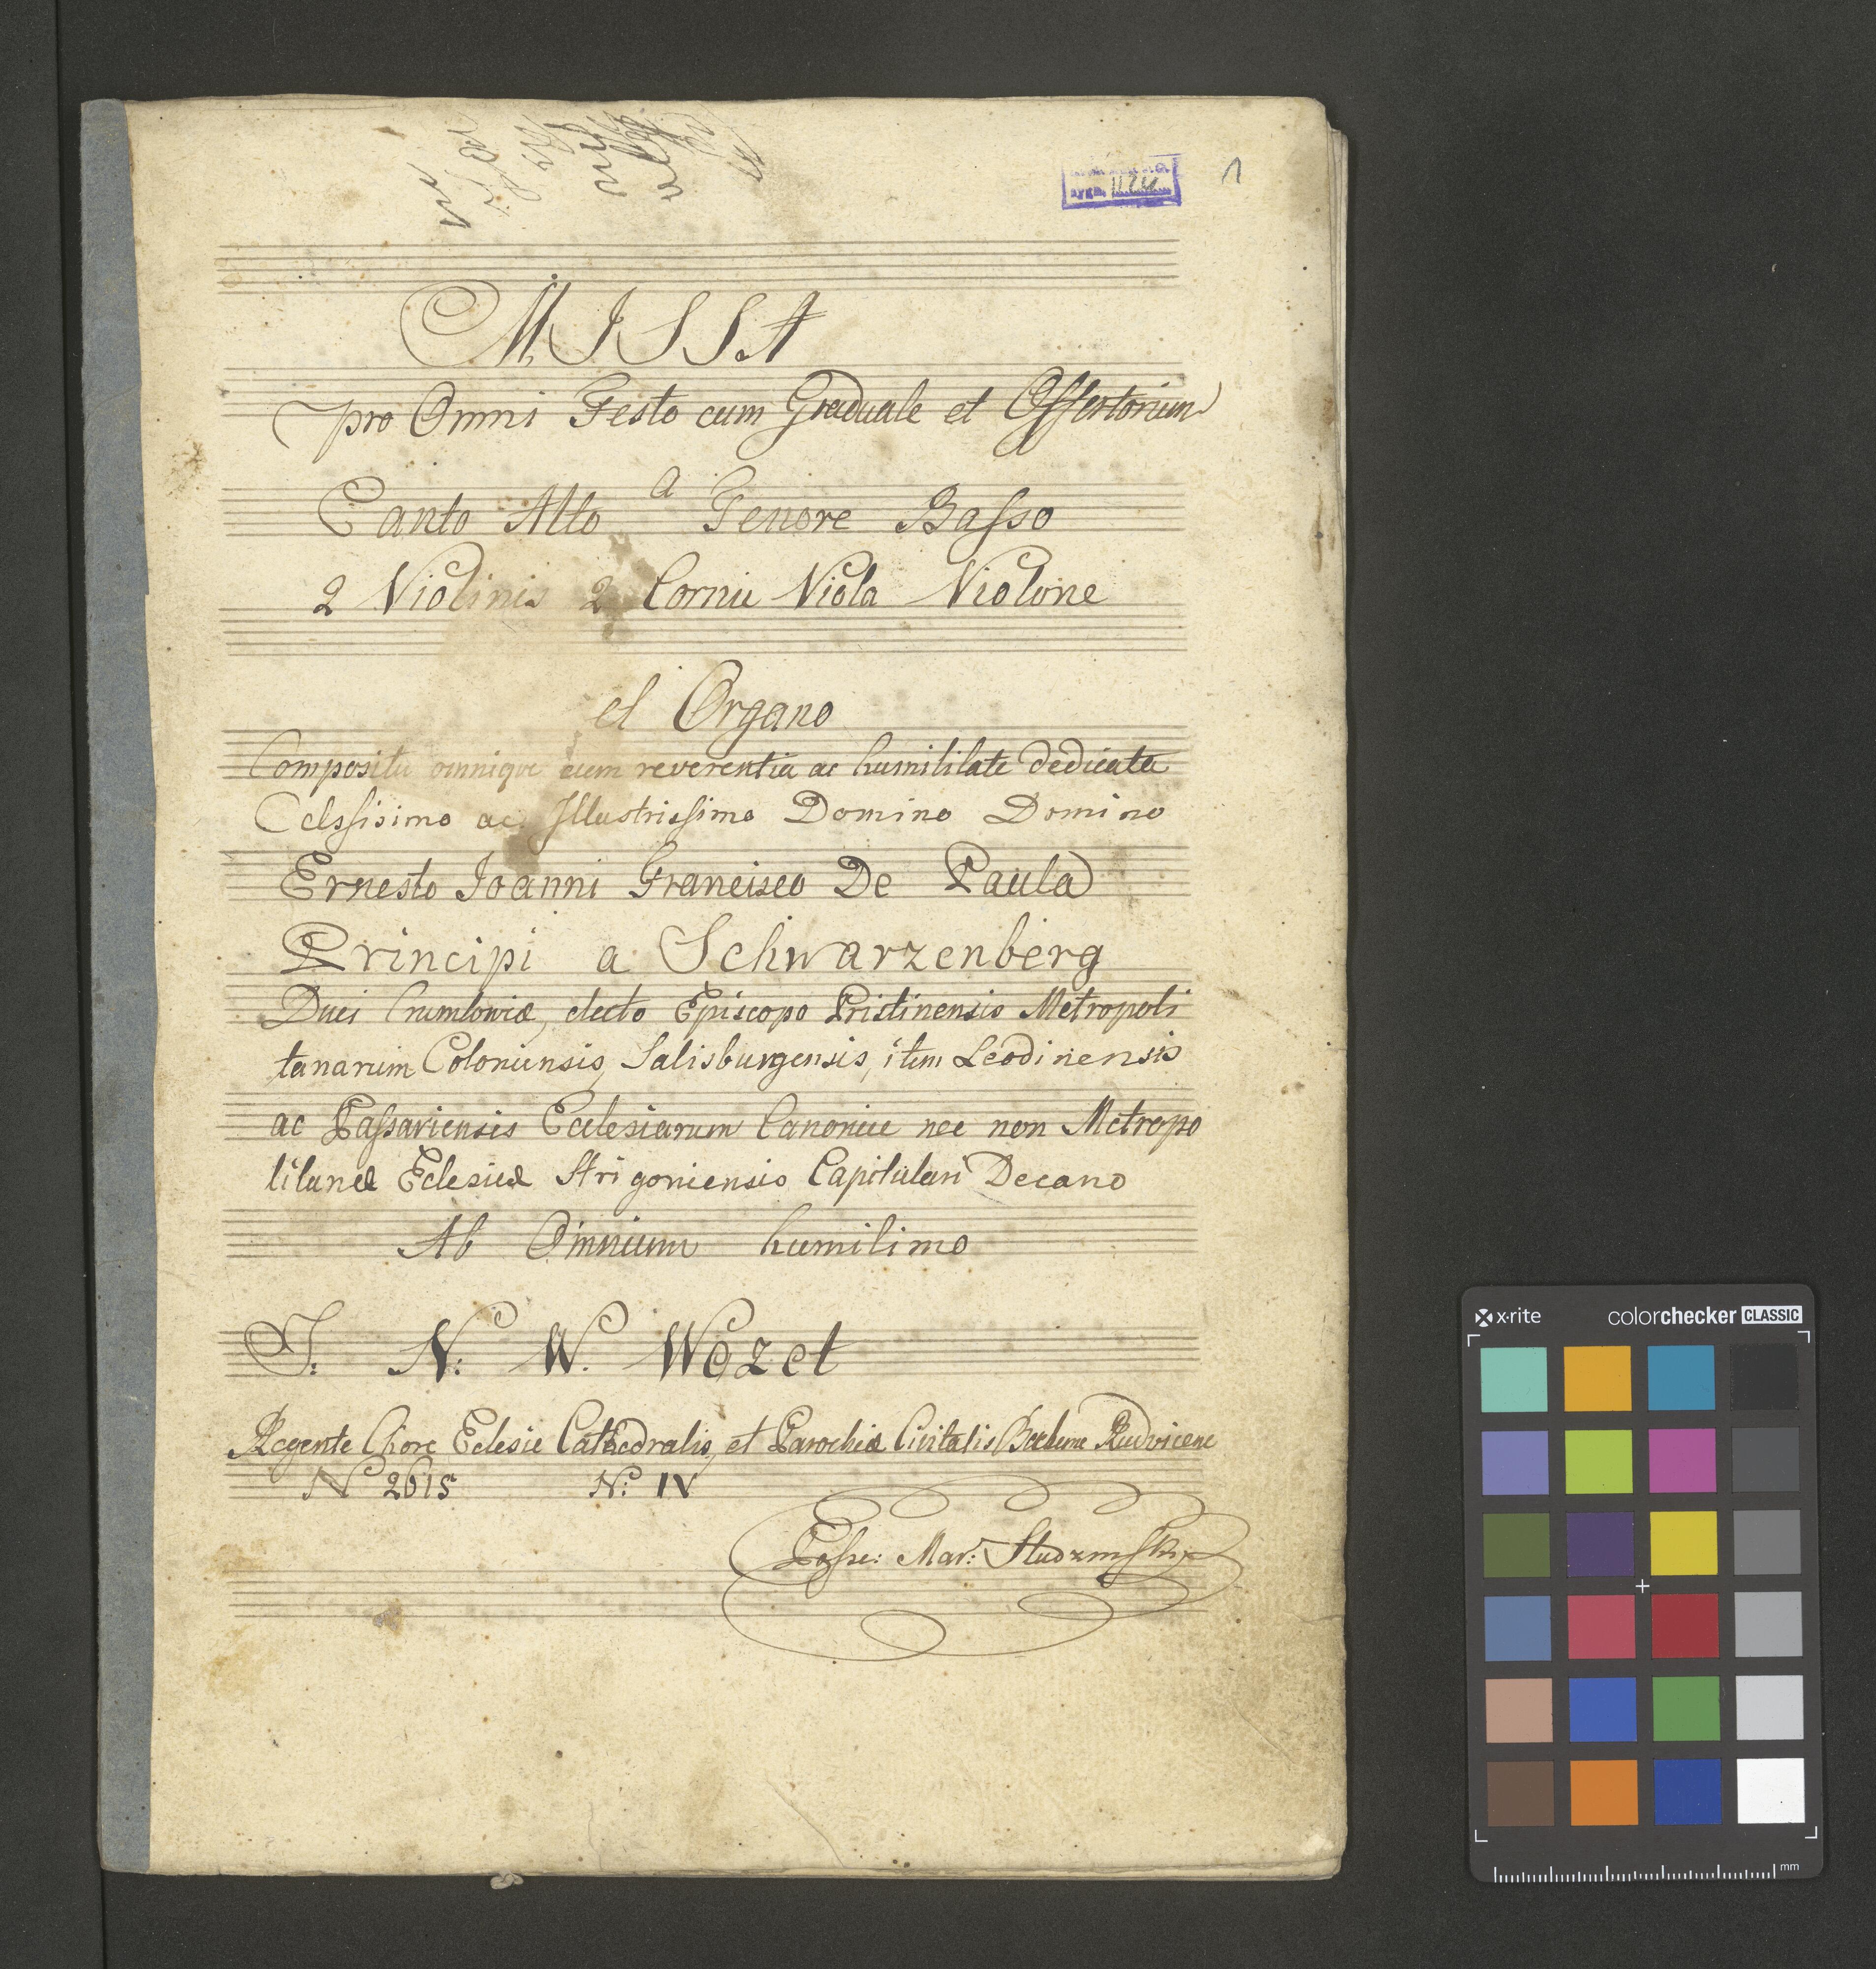 1
MISSA
pro Omni Festo cum Graduale et Offertorium
a
Canto Alto Tenore Basso
2 Violinis 2 Cornu Viola Violone
et Organo
Composita omnique cum reverentia ac humilitate dedicata
Celssisimo ac Illustrissimo Domino Domino
Ernesto Joanni Francisco De Paula
Principi a Schwarzenberg
Duci Crumloviæ, electo Episcopo Pristinensis Metropoli
tanarum Coloniensis, Salisburgensis, item Leodinensis
ac Passaviensis Ecclesiarum Canonico nec non Metropo
litanæ Eclesiæ Strigoniensis Capitulari Decano
Ab Omnium humilimo
J: N: W. Wozet
Regente Chore Eclesie Cathedralis, et Parochiæ Civitatis Boeheme Budvicene
N 2615 N: IV
Posse: Mar: Studzinski
x·rite colorchecker CLASSIC
mm